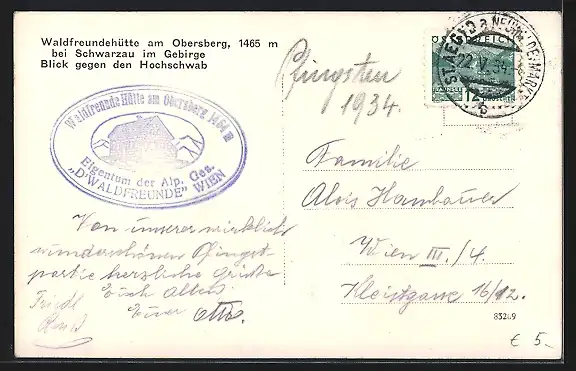 Waldfreundehütte am Obersberg, 1465 m
bei Schwarzau im Gebirge
Blick gegen den Hochschwab
Pfingsten
1934.
ST. AEGYD a. NEUWALDE
22.V.34
Waldfreunde Hütte am Obersberg 1464 m
Eigentum der Alp. Ges.
„D'WALDFREUNDE" WIEN
Familie
Alois Hambauer
Wien III./4.
Kleistgasse 16/12.
Von unserer wirklich
wunderschönen Pfingst-
partie herzliche Grüße
Euch Allen
Euer Otto.
Friedl
83249
€ 5.-